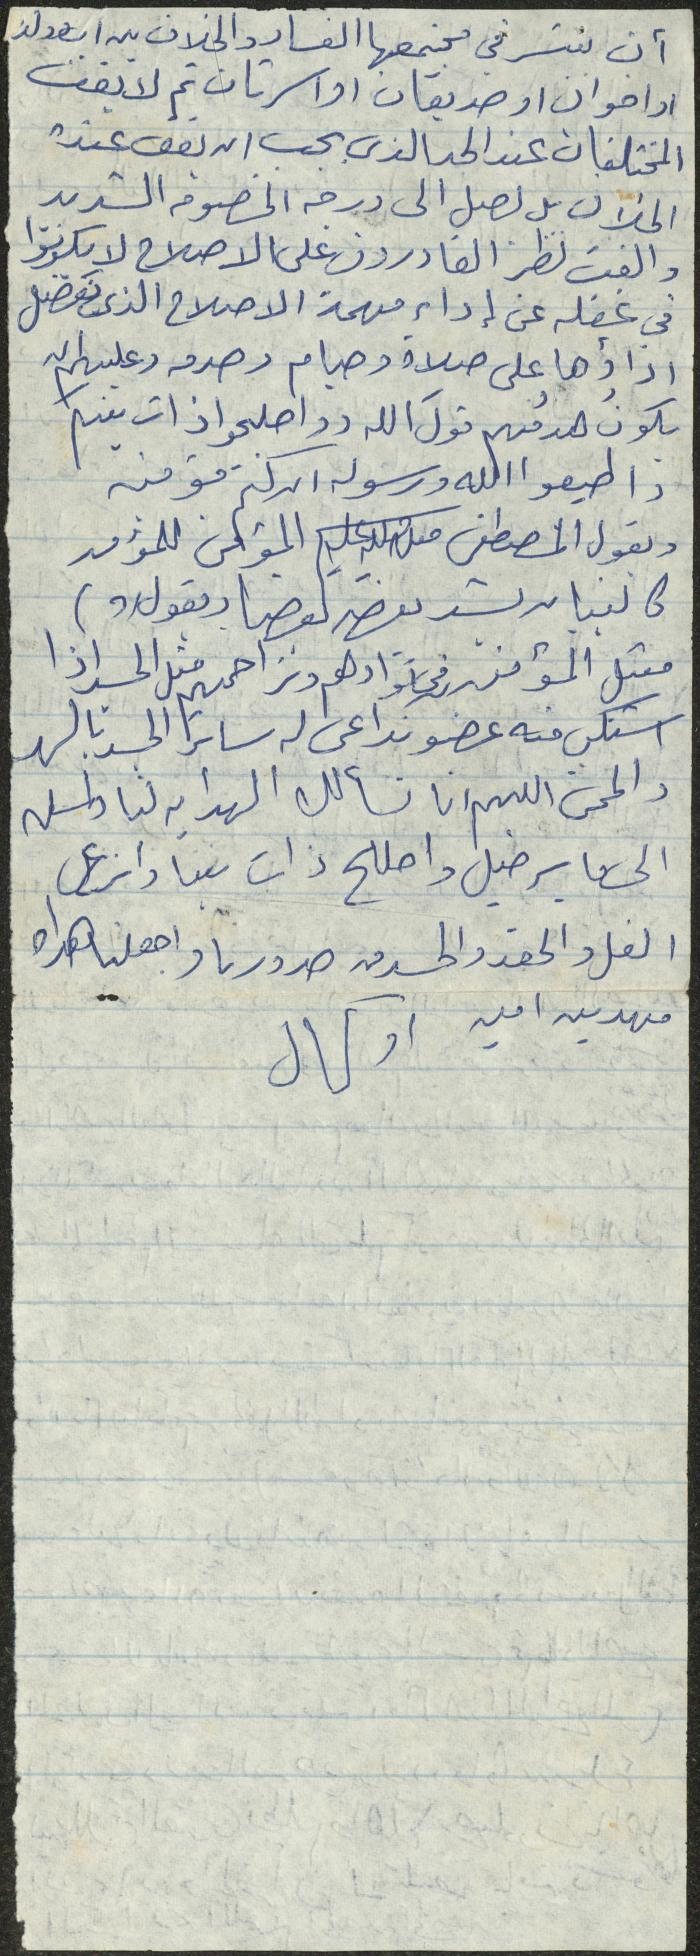 أن ينتشر في مجتمعها الفساد والخلاف بين
او اخوان او صديقان او اسرتان ثم لا يقف
المختلفان عند الحد الذى يجب ان يقف عنده
الخلاف بل يصل الى درجة الخصومه الشديد
والفت نظر القادرون على الاصلاح لا يكونوا
في غفله عن إداء مهمة الاصلاح الذى تفضل
اداؤها على صلاة وصيام وصدقه وعليهم ان
يكون هدفهم قول الله (( واصلحوا ذات بينكم
واطيعوا الله ورسوله ان كنتم مؤمنين
ويقول المصطفى صلى الله عليه المؤمن للمؤمن
كالبنيان يشد بعضه بعضا ويقول (( )
مثل المؤمنين في توادهم وتراحمهم مثل الجسد اذا
اشتكى منه عضو تداعى له سائر الجسد بالسهر
والحمى اللهم انا نسألك الهدايه لنا ولمسلمين
الى ما يرضيك واصلح ذات بيننا وانزع
الغل والحقد والحسد من صدورنا واجعلنا هداه
مهديين امين او كمال